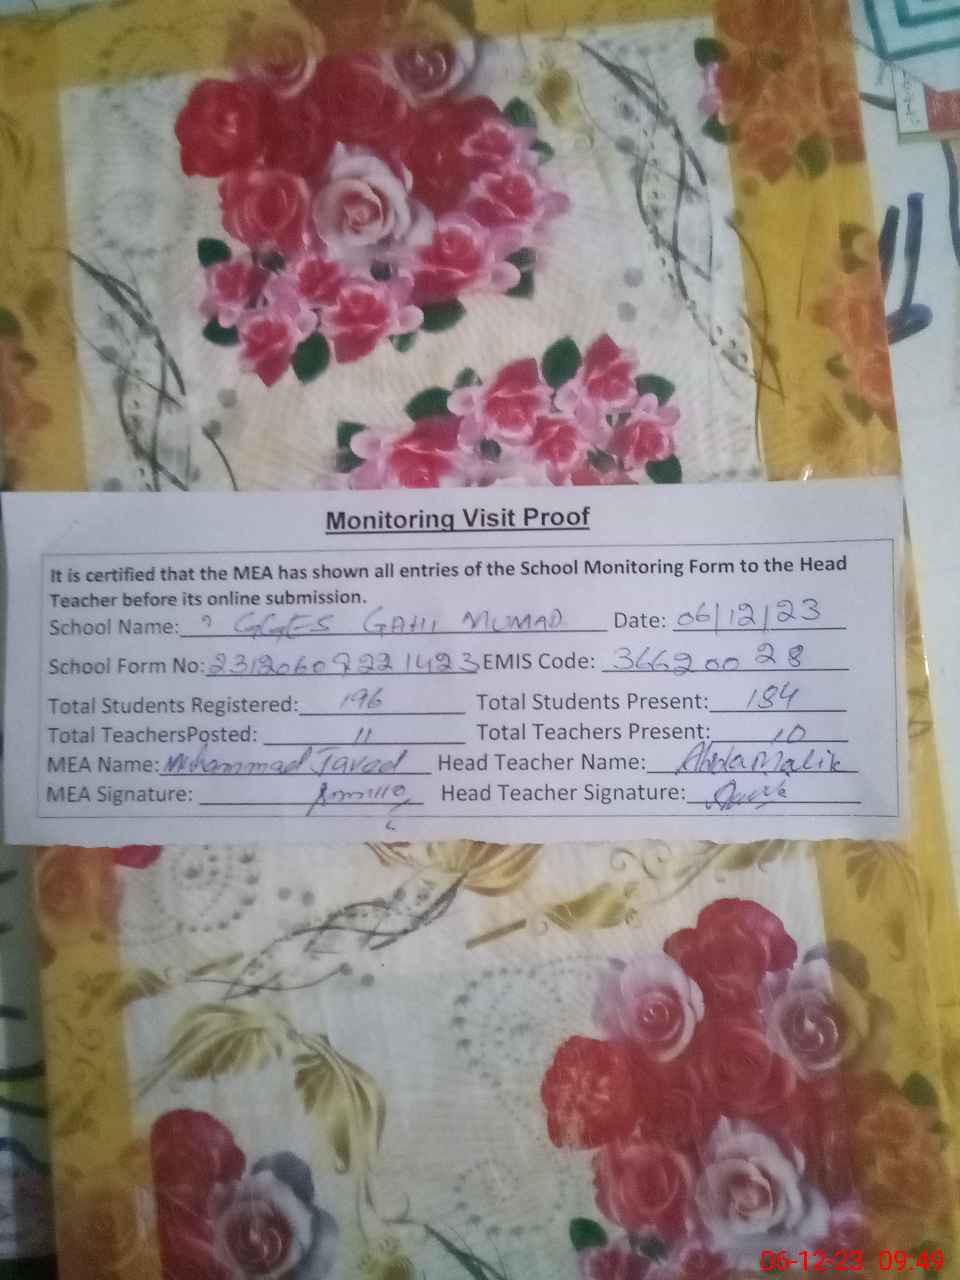 Monitoring Visit Proof
It is certified that the MEA has shown all entries of the School Monitoring Form to the Head
Teacher before its online submission.
School Name: GGES GAHI MUMAD Date: 06/12/23
School Form No: EMIS Code: 36620028
Total Students Registered: 196 Total Students Present: 184
Total TeachersPosted: 11 Total Teachers Present: 10
MEA Name: Muhammad Javed Head Teacher Name: Malik
MEA Signature: Head Teacher Signature:
06-12-23 09:49